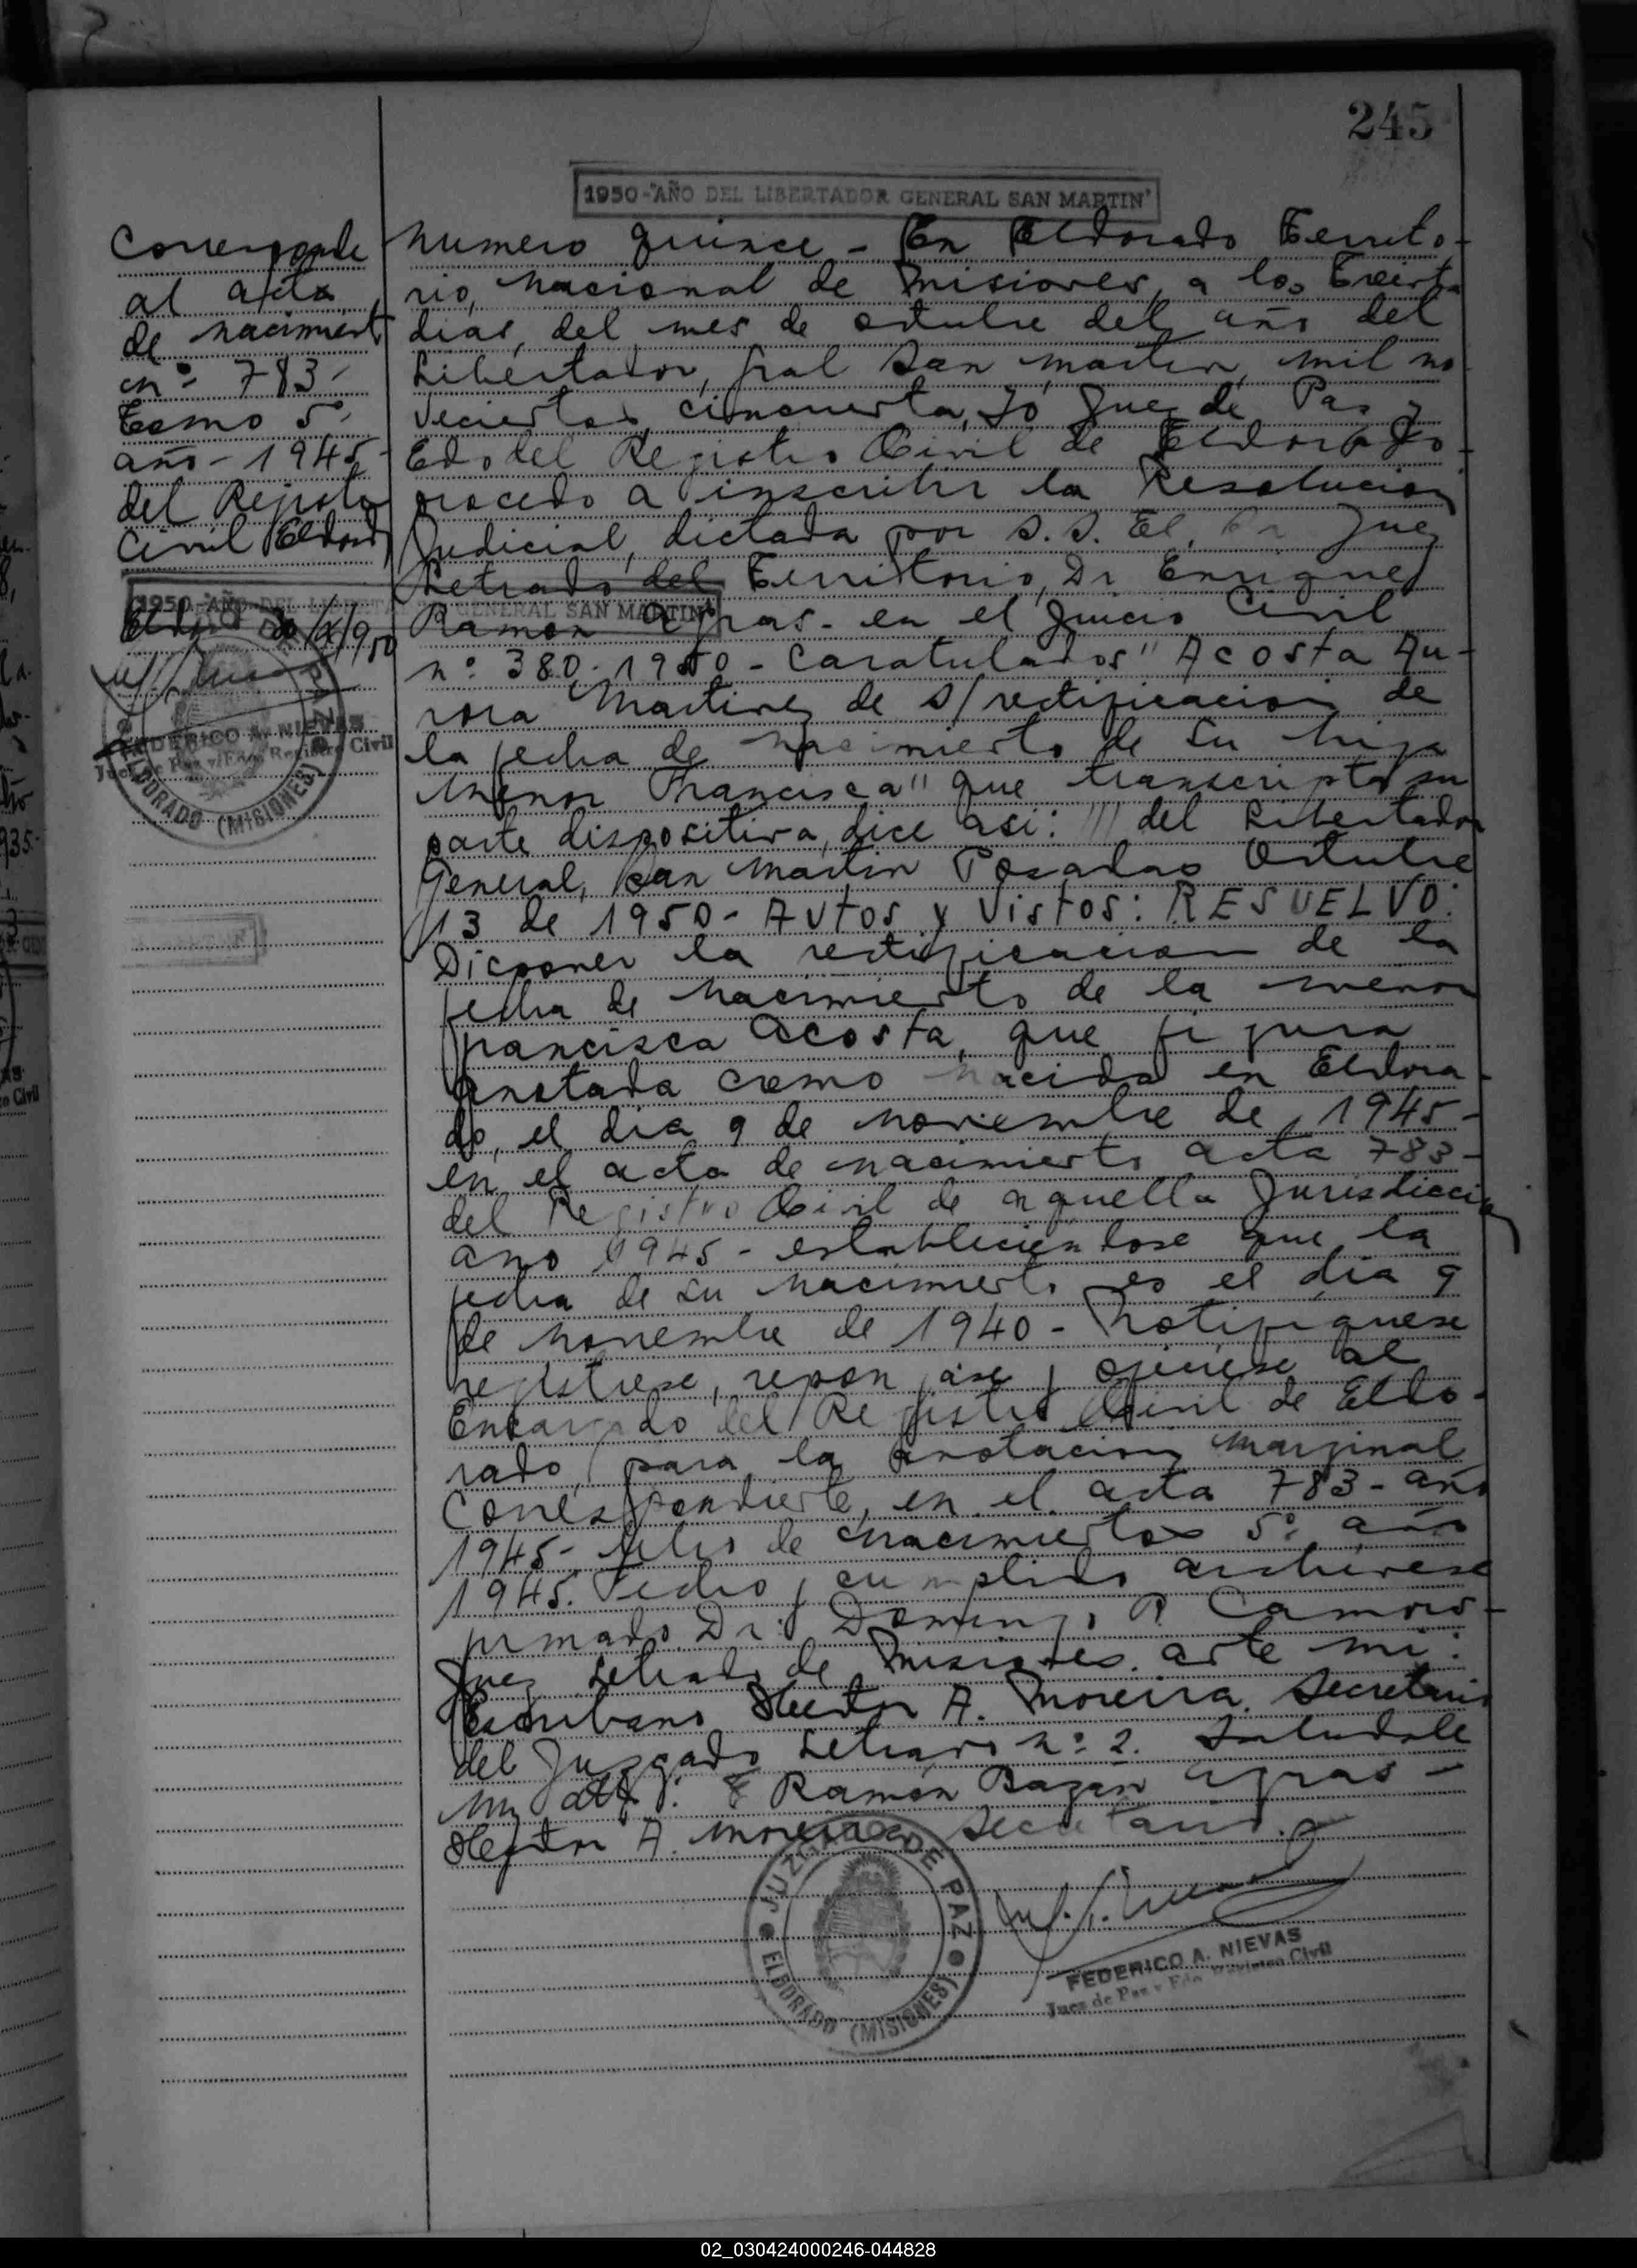 245
1950-"AÑO DEL LIBERTADOR GENERAL SAN MARTIN"
Corresponde
al acta
de nacimient
n° 783-
Tomo 5°
año - 1945-
del Registro
Civil Eldord
1950-AÑO DEL LIBERTADOR GENERAL SAN MARTIN
30/X/950
FEDERICO A. NIEVAS
Juez de Paz y Edo Registro Civil
ELDORADO (MISIONES)
numero quince - En Eldorado Territo-
rio, nacional de Misiones, a los treinta
dias, del mes de octubre del año del
Libertador, Gral San Martin, mil no
vecientos cincuenta, Yo Juez de Paz y
Edo del Registro Civil de Eldorado
procedo a inscribir la Resolucion
Judicial, dictada por S. S. El Juez
Letrado del Territorio, Dr Enrique
Ramon - en el Juicio Civil
n°: 380-1950 - Caratulados "Acosta Au-
rora Martinez de s/ rectificacion de
la fecha de nacimiento de su hija
menor Francisca" que transcripta su
parte dispositiva, dice asi: /// del Libertador
General, San Martin Posadas Octubre
13 de 1950 - Autos y Vistos: RESUELVO:
Disponer la rectificacion de la
fecha de nacimiento de la menor
Francisca Acosta, que figura
anotada como nacida en Eldora-
do, el dia 9 de noviembre de 1945-
en el acta de nacimiento acta 783-
del Registro Civil de aquella Jurisdiccion
año 1945 - estableciendose que la
fecha de su nacimiento es el dia 9
de noviembre de 1940 - Notifiquese
registrese, repongase y oficiese al
Encargado del Registro Civil de Eldo-
rado, para la anotacion marginal
Correspondiente, en el acta 783 - año
1945- de nacimientos 5° año
1945. Fecho y cumplido archivese
firmado Dr. Domingo
Juez Letrado de Misiones. ante mi:
Escribano Hector A. Moreira Secretario
del Juzgado Letrado n°: 2. Saludale
muy att. : E Ramón Bazan
Hector A. Moreira Secretario.
JUZGADO DE PAZ
ELDORADO (MISIONES)
FEDERICO A. NIEVAS
Juez de Paz y Edo Registro Civil
02_030424000246-044828